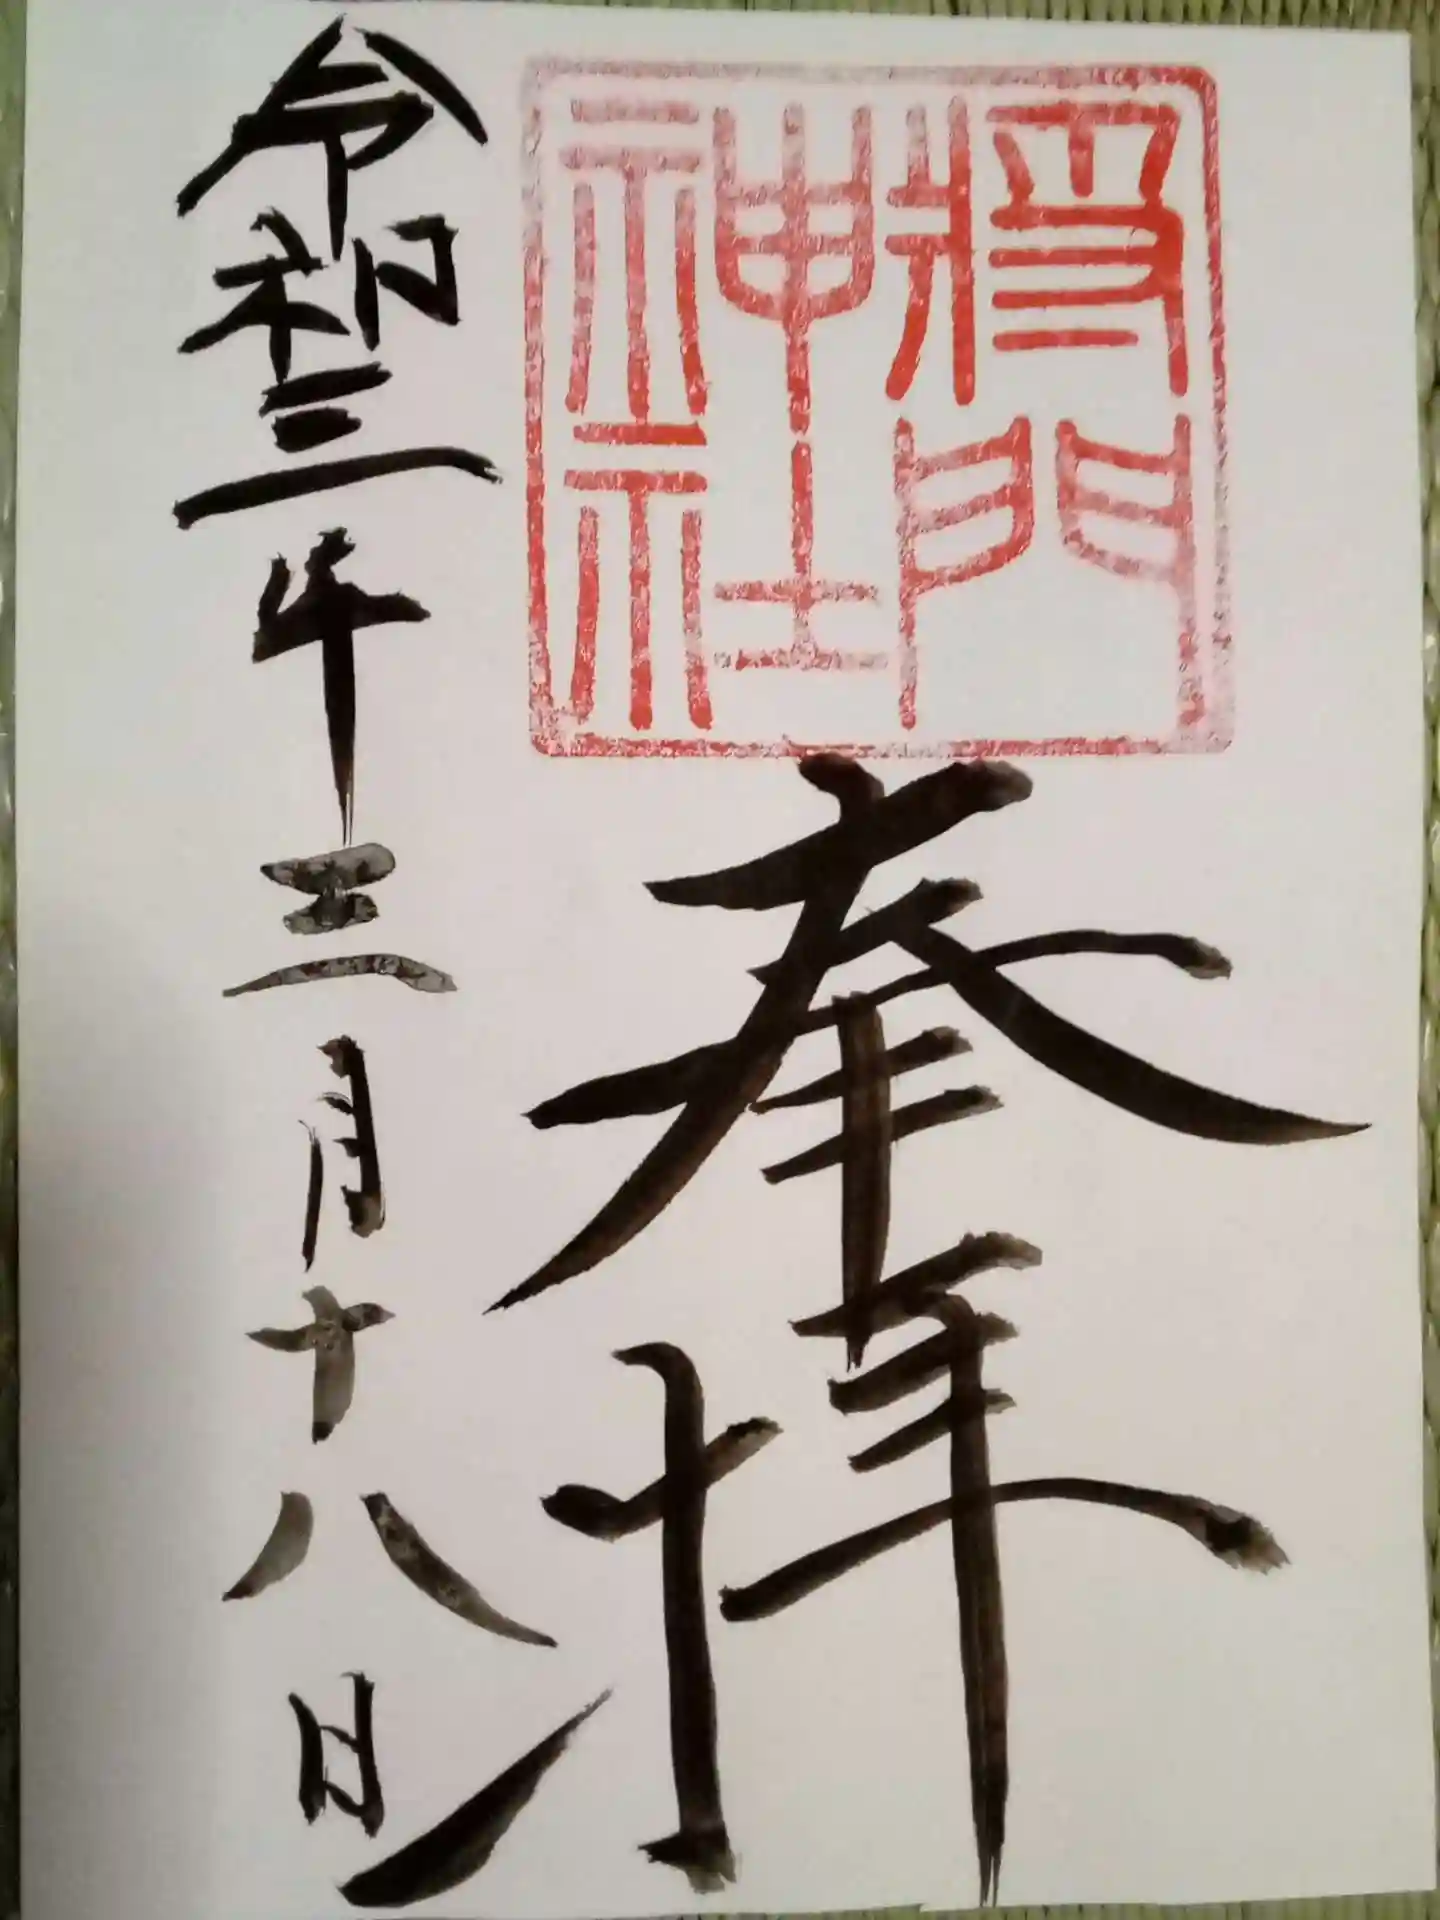 将門
神社
奉拝
令和三年三月十八日